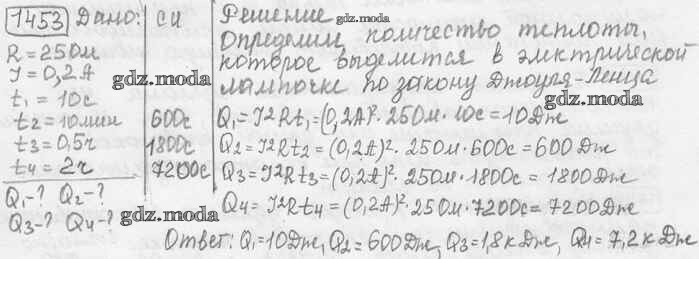 1453 Дано: СИ
R = 25 Ом
J = 0,2 А
t₁ = 10с
t₂ = 10мин 600с
t₃ = 0,5ч 1800с
t₄ = 2ч 7200с
Q₁-? Q₂-?
Q₃-? Q₄-?
gdz.moda
gdz.moda
Решение gdz.moda
Определим количество теплоты,
которое выделится в электрической
лампочке по закону Джоуля-Ленца
gdz.moda
Q₁ = J²Rt₁ = (0,2А)² · 25 Ом · 10с = 10 Дж
Q₂ = J²Rt₂ = (0,2А)² · 25 Ом · 600с = 600 Дж
gdz.moda
Q₃ = J²Rt₃ = (0,2А)² · 25 Ом · 1800с = 1800 Дж
Q₄ = J²Rt₄ = (0,2А)² · 25 Ом · 7200с = 7200 Дж
gdz.moda
Ответ: Q₁ = 10 Дж, Q₂ = 600 Дж, Q₃ = 1,8 кДж, Q₄ = 7,2 кДж